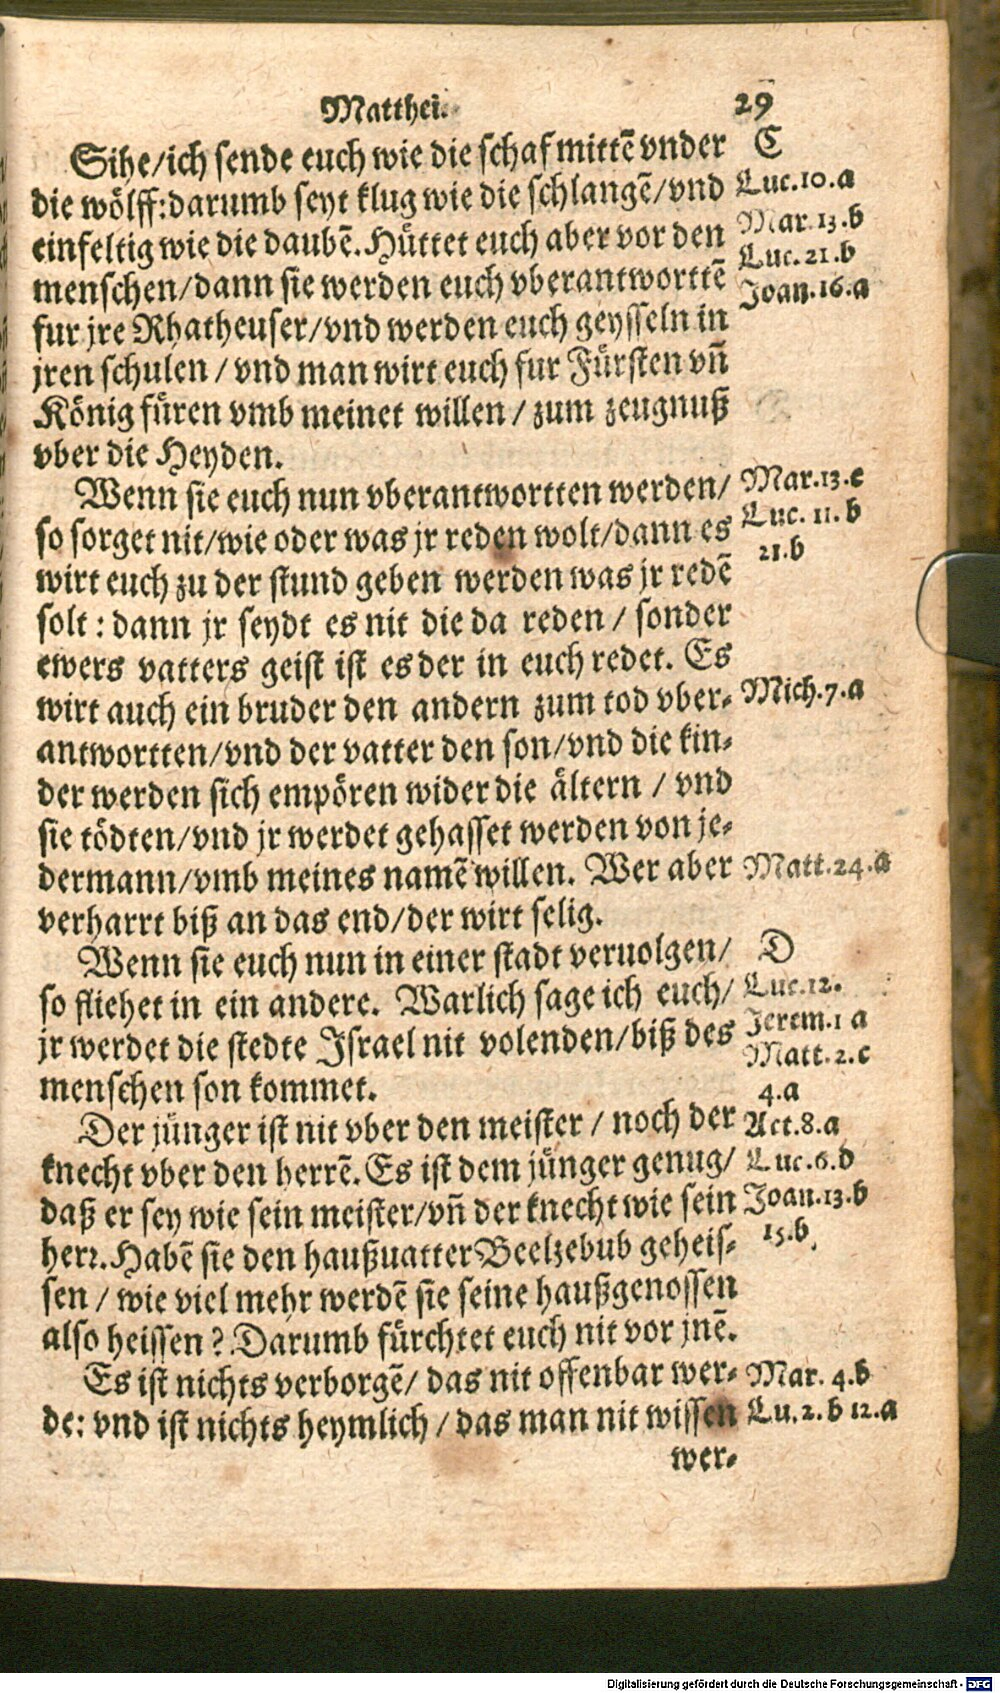 Matthei. 29
Sihe/ich sende euch wie die schaf mittē vnder
die wölff:darumb seyt klug wie die schlangē/vnd
einfeltig wie die daubē. Hüttet euch aber vor den
menschen/dann sie werden euch vberantworttē
fur jre Rhatheuser/vnd werden euch geysseln in
jren schulen / vnd man wirt euch fur Fürsten vn̄
König füren vmb meinet willen / zum zeugnuß
vber die Heyden.
Wenn sie euch nun vberantwortten werden/
so sorget nit/wie oder was jr reden wolt/dann es
wirt euch zu der stund geben werden was jr redē
solt : dann jr seydt es nit die da reden / sonder
ewers vatters geist ist es der in euch redet. Es
wirt auch ein bruder den andern zum tod vber⸗
antwortten/vnd der vatter den son/vnd die kin⸗
der werden sich empören wider die ältern / vnd
sie tödten/vnd jr werdet gehasset werden von je⸗
dermann/vmb meines namē willen. Wer aber
verharrt biß an das end/der wirt selig.
Wenn sie euch nun in einer stadt veruolgen/
so fliehet in ein andere. Warlich sage ich euch/
jr werdet die stedte Israel nit volenden/biß des
menschen son kommet.
Der jünger ist nit vber den meister / noch der
knecht vber den herrē. Es ist dem jünger genug/
daß er sey wie sein meister/vn̄ der knecht wie sein
herr. Habē sie den haußuatter Beelzebub geheis⸗
sen / wie viel mehr werdē sie seine haußgenossen
also heissen ? Darumb fürchtet euch nit vor jnē.
Es ist nichts verborgē/ das nit offenbar wer⸗
de: vnd ist nichts heymlich / das man nit wissen
wer⸗
C
Luc.10.a
Mar.13.b
Luc.21.b
Joan.16.a
Mar.13.c
Luc.11.b
21.b
Mich.7.a
Matt.24.a
D
Luc.12.
Jerem.1 a
Matt.2.c
4.a
Act.8.a
Luc.6.d
Joan.13.b
15.b.
Mar. 4.b
Lu.2.b 12.a
Digitalisierung gefördert durch die Deutsche Forschungsgemeinschaft - DFG